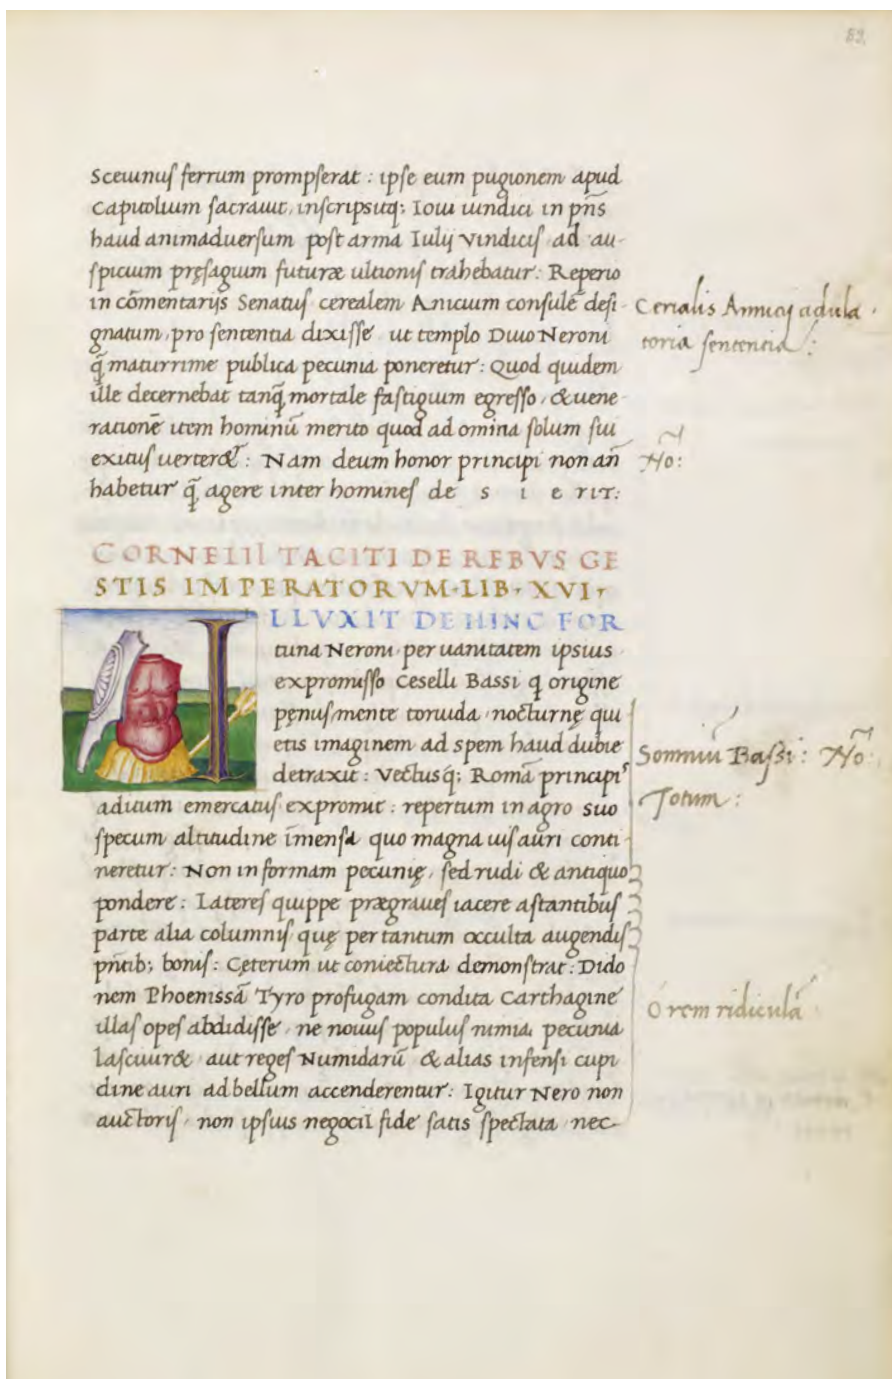 89
Sceuinuſ ferrum prompſerat : ipſe eum pugionem apud
Capitolium ſacrauit, inſcripsitq; Ioui uindici in pn̄s
haud animaduerſum poſt arma Iulij vindiciſ ad au-
ſpicium pręſagium futuræ ultioniſ trahebatur: Reperio
in cōmentarijs Senatuſ cerealem Anicium conſulē deſi-
gnatum, pro ſententia dixiſſe ut templo Diuo Neroni
q̄ maturrime publica pecunia poneretur: Quod quidem
ille decernebat tanq̄ mortale faſtigium egreſſo, & uene
rationē item hominū merito quod ad omina ſolum ſui
exituſ uerter&: Nam deum honor principi non an̄
habetur q̄ agere inter homineſ de s i e rit:
CORNELII TACITI DE REBVS GE
STIS IMPERATORVM·LIB·XVI·
ILLVXIT DE HINC FOR
tuna Neroni per uanitatem ipsius
expromiſſo Ceselli Bassi q origine
pęnuſ mente toruida nocturnę qui
etis imaginem ad spem haud dubie
detraxit: Vectusq; Romā principiˢ
aditum emercatuſ expromit: repertum in agro suo
ſpecum altitudine īmensa quo magna uiſ auri conti
neretur: Non in formam pecunię, ſed rudi & antiquo
pondere: Latereſ quippe prægraueſ iacere aſtantibuſ
parte alia columniſ quę per tantum occulta augendiſ
pn̄tib; boniſ: Cęterum ut coniectura demonſtrat: Dido
nem Phoenissā Tyro profugam condita Carthagine
illaſ opeſ abdidiſſe ne nouuſ populuſ nimia pecunia
Laſciuir& aut regeſ Numidarū & alias infenſi cupi
dine auri ad bellum accenderentur: Igitur Nero non
auctoriſ, non ipſius negocii fide ſatis ſpectata nec-
Cerialis Annicij adula
toria ſententia :
No:
Somniū Baſsi : No:
Totum :
O rem ridiculā